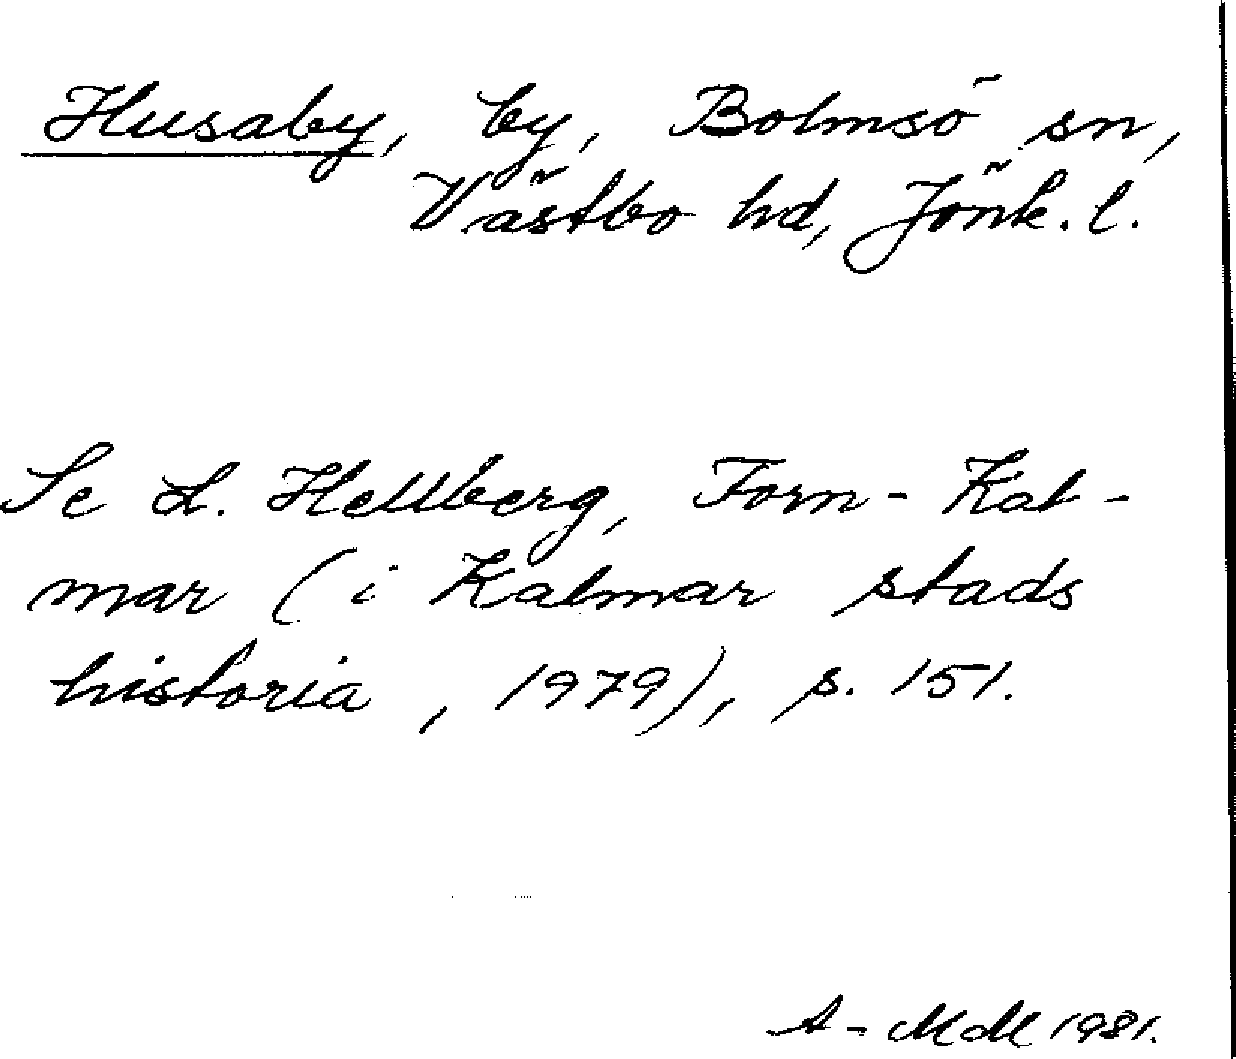 Husaby, by, Bolmsö sn,
Västbo hd, Jönk. l.
Se L. Hellberg, Forn-Kal-
mar (i Kalmar stads
historia, 1979), s. 151.
A-MM 1981.